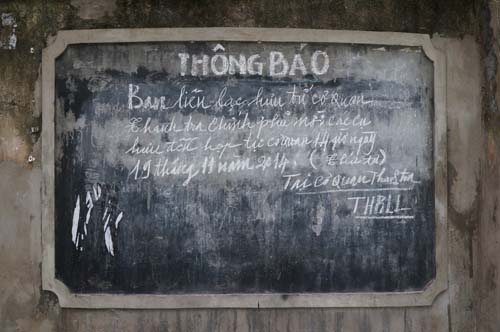 THÔNG BÁO
Ban liên lạc hưu trí cơ quan
Thanh tra Chính phủ mời các cụ
hưu đến họp tại cơ quan 14 giờ ngày
19 tháng 11 năm 2014. (Thứ tư)
Tại cơ quan Thanh tra
TBLL